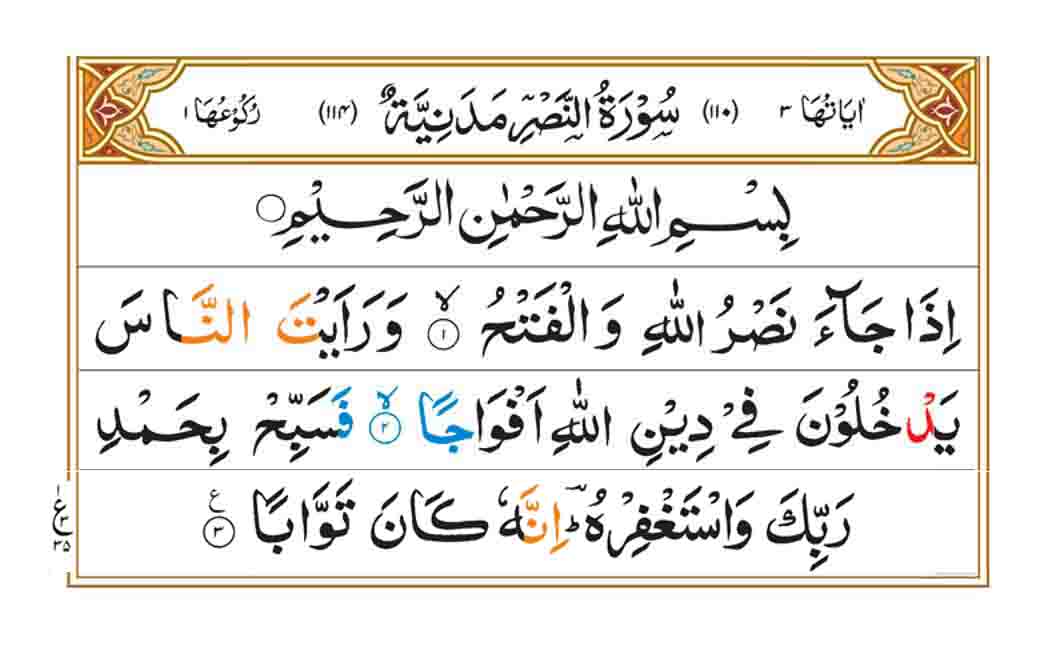 اٰيَاتُهَا ٣ (١١٠) سُوْرَةُ النَّصْرِ مَدَنِيَّةٌ (١١٤) رُكُوْعُهَا ١
بِسْمِ اللّٰهِ الرَّحْمٰنِ الرَّحِيْمِ
اِذَا جَآءَ نَصْرُ اللّٰهِ وَالْفَتْحُ ۙ﴿١﴾ وَرَاَيْتَ النَّاسَ
يَدْخُلُوْنَ فِيْ دِيْنِ اللّٰهِ اَفْوَاجًا ۙ﴿٢﴾ فَسَبِّحْ بِحَمْدِ
رَبِّكَ وَاسْتَغْفِرْهُ ؕ اِنَّهٗ كَانَ تَوَّابًا ﴿٣﴾ ع
١
ع
٣
٣٥